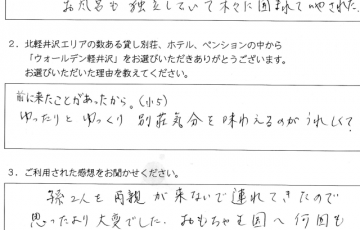 お風呂も独立していて木々に囲まれて癒された。
2．北軽井沢エリアの数ある貸し別荘、ホテル、ペンションの中から
「ウォールデン軽井沢」をお選びいただきありがとうございます。
お選びいただいた理由を教えてください。
前に来たことがあったから。(小5)
ゆったりとゆっくり 別荘気分を味わえるのがうれしくて
3．ご利用された感想をお聞かせください。
孫2人を両親が来ないで連れてきたので
思ったより大変でした。おもちゃも 何回も